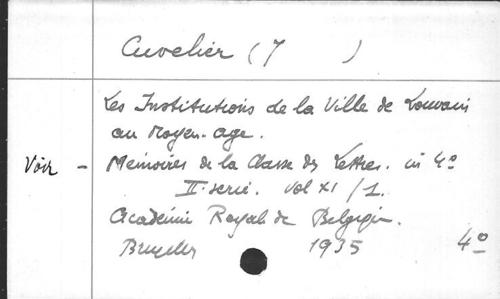 Cuvelier (J )
Les Institutions de la Ville de Louvain
au Moyen-age.
Voir - Mémoires de la Classe des Lettres. in 4º
II serie. Vol XI / 1.
Académie Royale de Belgique.
Bruxelles 1935 4º